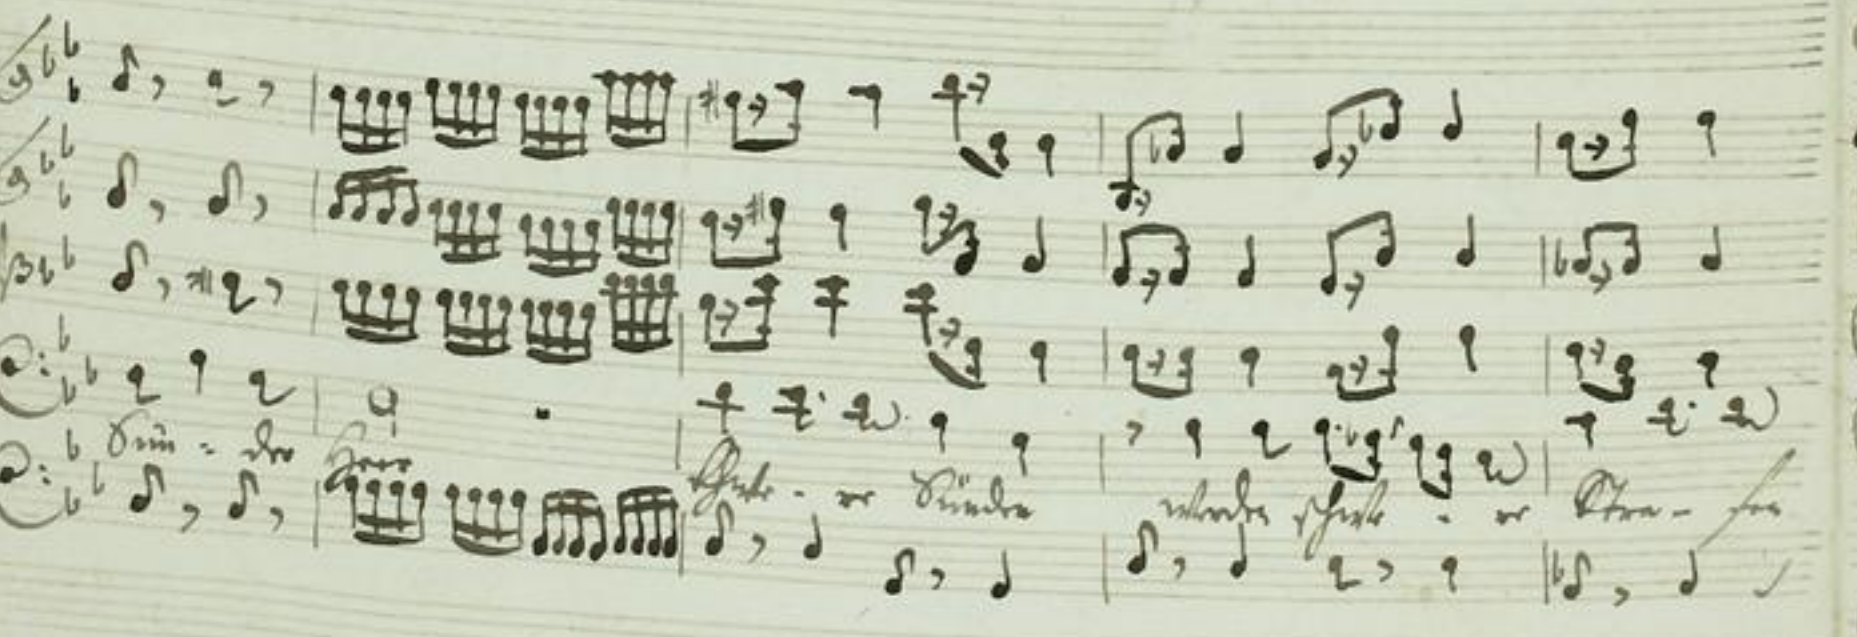 Sün - der Herr Schwe - re Sünden werden schwe - re Stra - fen